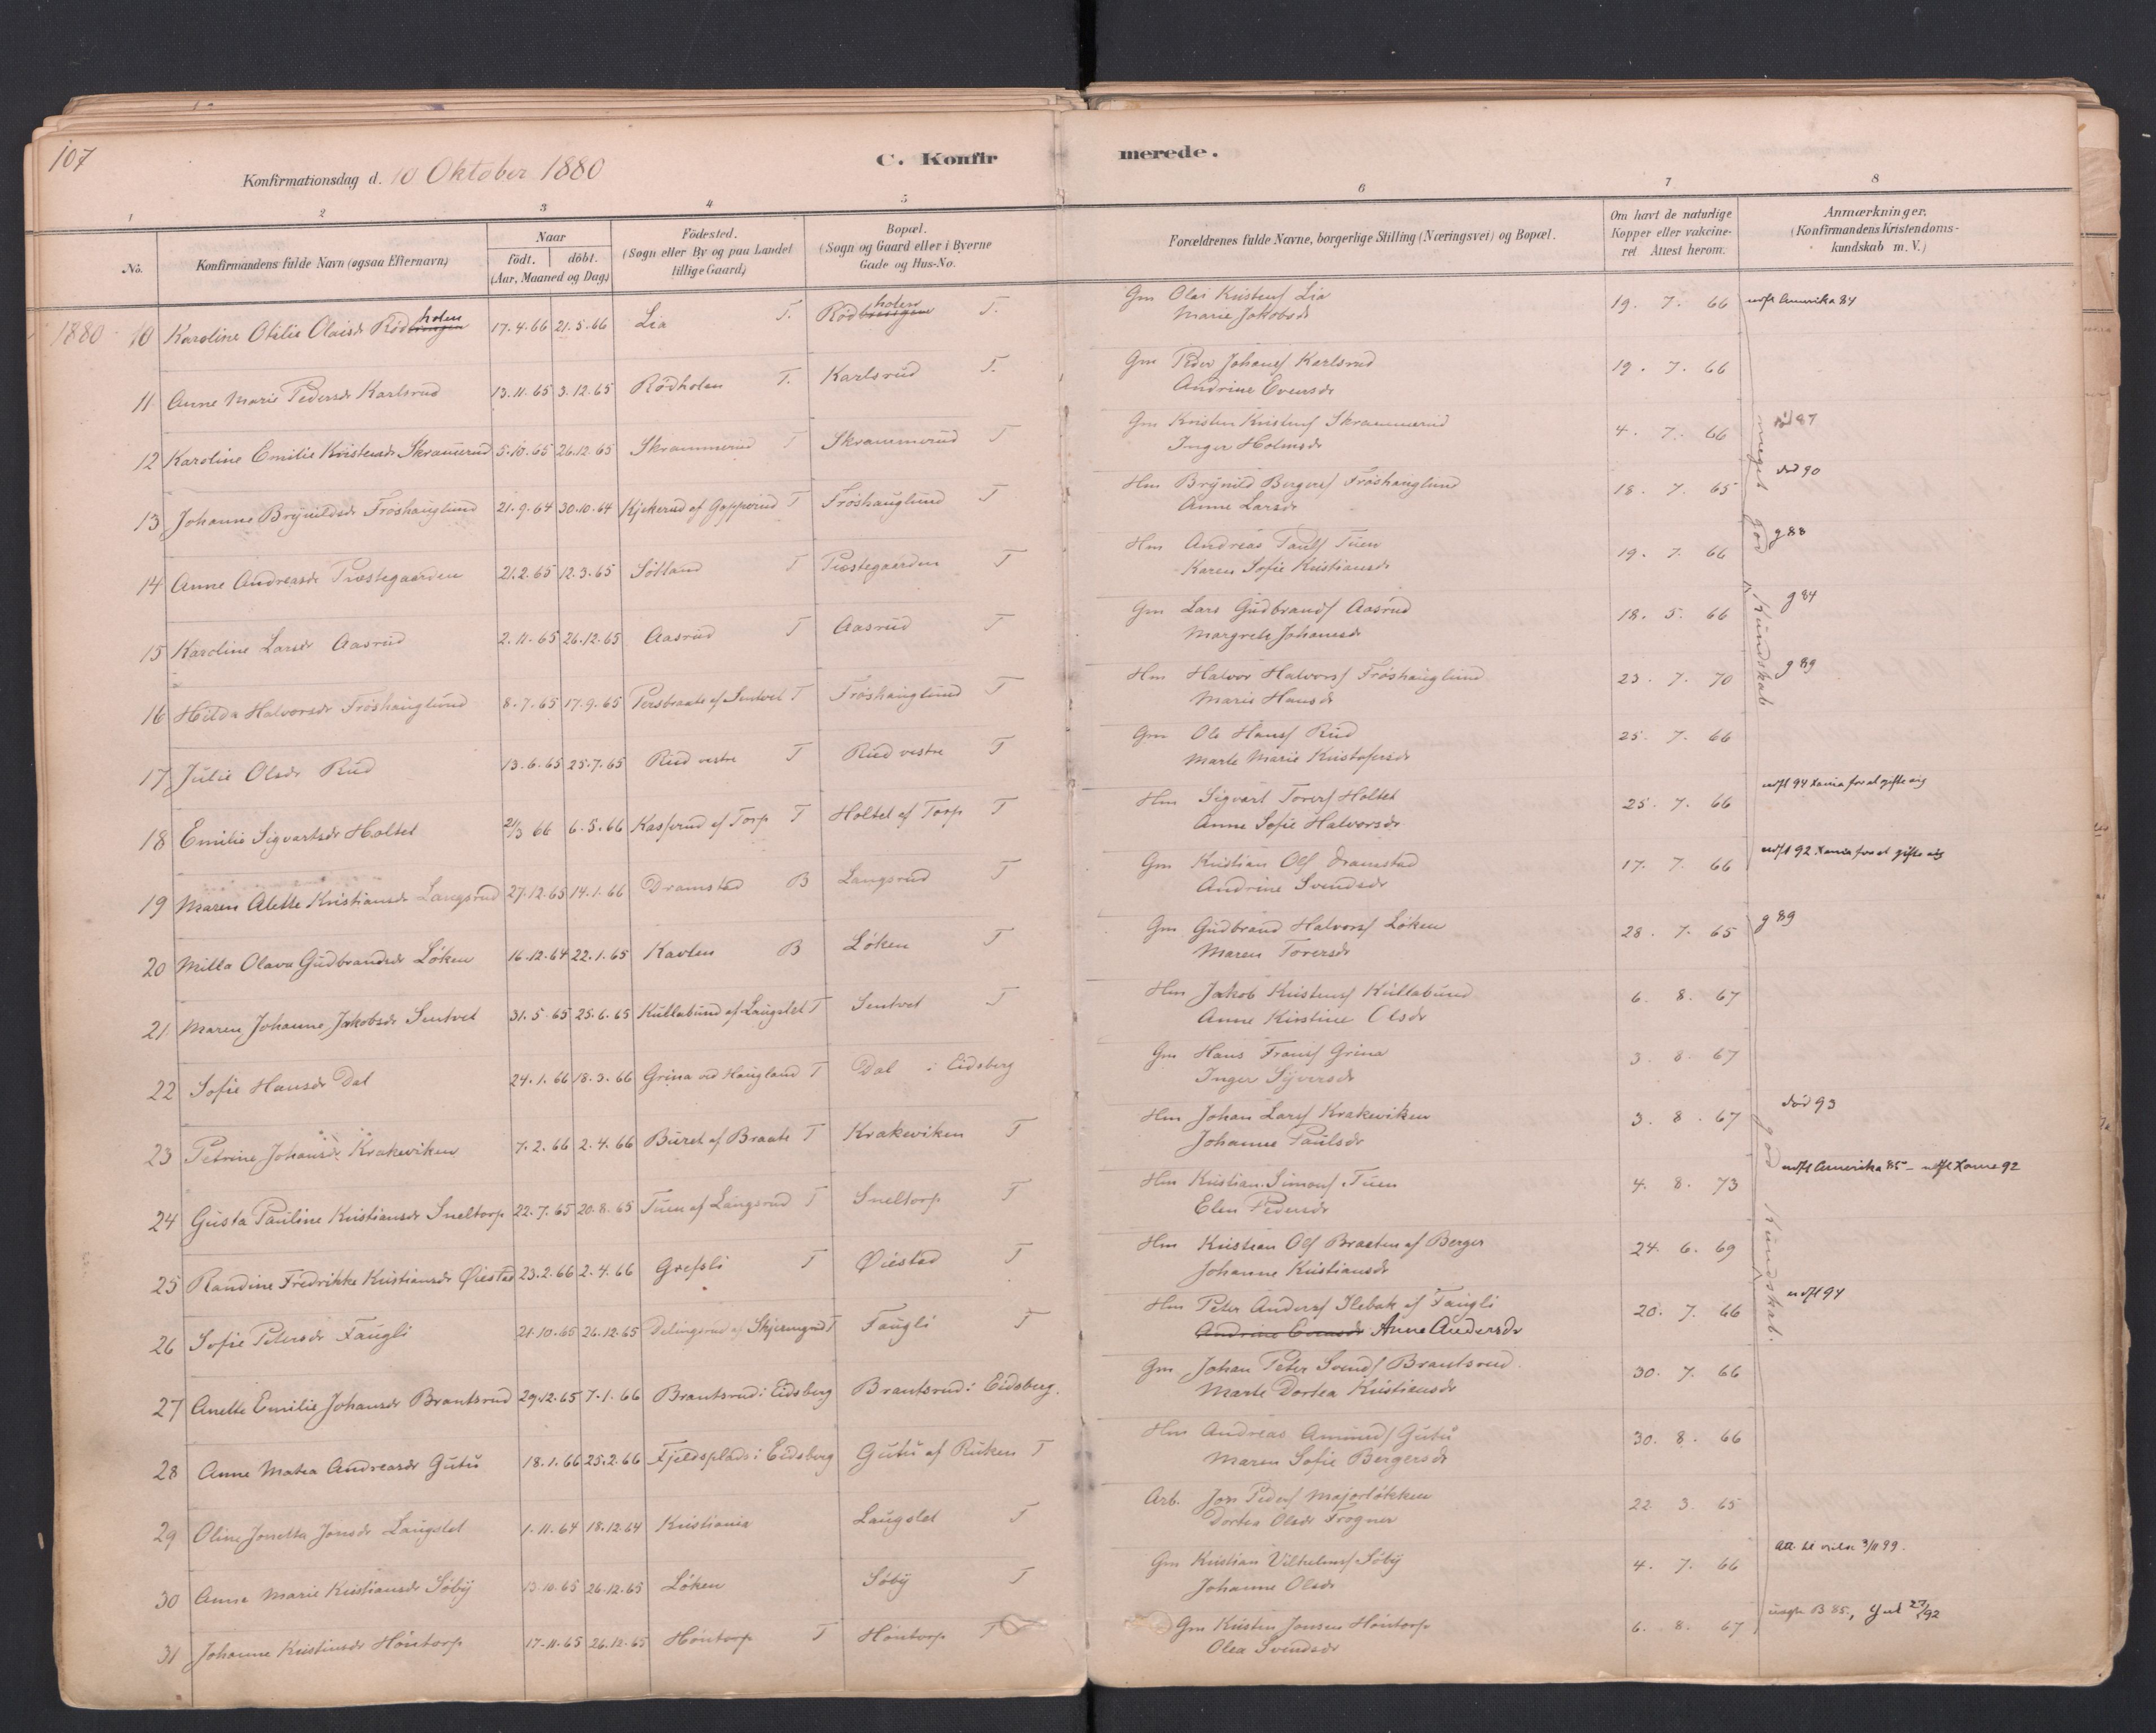 107
C. Konfirmerede.
Konfirmationsdag d. 10 Oktober 1880
1 2 3 4 5 6 7 8
No.
Konfirmandens fulde Navn (ogsaa Efternavn)
Naar
födt. döbt.
(Aar, Maaned og Dag)
Födested.
(Sogn eller By og paa Landet
tillige Gaard)
Bopæl.
(Sogn og Gaard eller i Byerne
Gade og Hus-No.
Forældrenes fulde Navne, borgerlige Stilling (Næringsvei) og Bopæl.
Om havt de naturlige
Kopper eller vakcine-
ret Attest herom.
Anmærkninger.
(Konfirmandens Kristendoms-
kundskab m. V.)
1880 10 Karoline Otilie Olaisdr Rödholen 17.4.66 21.5.66 Lia T. Rödholen T. Gm Olai Kristens Lia 19. 7. 66 udfl Amerika 84
Marie Jakobsdr
11 Anne Marie Pedersdr Karlsrud 13.11.65 3.12.65 Rödholen T. Karlsrud T. Gm Peder Johans Karlsrud 19. 7. 66
Andrine Evensdr
12 Karoline Emilie Kristensdr Skramerud 5.10.65 26.12.65 Skrammerud T Skrammerud T Gm Kristen Kristens Skrammerud 4. 7. 66 87
Inger Holmsdr
13 Johanne Brynildsdr Fröshauglund 21.9.64 30.10.64 Kjikerud af Gopperud T Fröshauglund T Hm Brynild Bergers Fröshauglund 18. 7. 65 död 90
Anne Larsdr
14 Anne Andreasdr Præstegaarden 21.2.65 12.3.65 Sötland T Præstegaarden T Hm Andreas Pauls Tuen 19. 7. 66 g 88
Karen Sofie Kristiansdr
15 Karoline Larsdr Aasrud 2.11.65 26.12.65 Aasrud T Aasrud T Gm Lars Gudbrands Aasrud 18. 5. 66 g 84
Margrete Johansdr
16 Hilda Halvorsdr Fröshauglund 8.7.65 17.9.65 Persbraate af Sentvet T Fröshauglund T Hm Halvor Halvors Fröshauglund 23. 7. 70 g 89
Marie Hansdr
meget god Kundskab
17 Julie Olsdr Rud 13.6.65 25.7.65 Rud vestre T Rud vestre T Gm Ole Hans Rud 25. 7. 66
Marte Marie Kristofersdr
18 Emilie Sigvartsdr Holtet 21/3 66 6.5.66 Kasserud af Torp T Holtet af Torp T Hm Sigvart Torers Holtet 25. 7. 66 udfl 94 Xania for at gifte sig
Anne Sofie Halvorsdr
19 Maren Alette Kristiansdr Langsrud 27.12.65 14.1.66 Dramstad B Langsrud T Gm Kristian Ols Dramstad 17. 7. 66 udfl 92 Xania for at gifte sig
Andrine Svendsdr
20 Milla Olava Gudbrandsdr Löken 16.12.64 22.1.65 Kavlen B Löken T Gm Gudbrand Halvors Löken 28. 7. 65 g 89
Maren Torersdr
21 Maren Johanne Jakobsdr Sentvet 31.5.65 25.6.65 Kullebund af Laugslet T Sentvet T Hm Jakob Kristens Kullebund 6. 8. 67
Anne Kirstine Olsdr
22 Sofie Hansdr Dal 24.1.66 18.3.66 Grina ved Haugland T Dal i Eidsberg Gm Hans Frans Grina 3. 8. 67
Inger Syversdr
23 Petrine Johansdr Krakeviken 7.2.66 2.4.66 Buret af Braate T Krakeviken T Hm Johan Lars Krakeviken 3. 8. 67 död 93
Johanne Paulsdr
24 Gusta Pauline Kristiansdr Sneltorp 22.7.65 20.8.65 Tuen af Langsrud T Sneltorp T Hm Kristian Simons Tuen 4. 8. 73 udfl Amerika 85 – udfl Xania 92
Elen Pedersdr
25 Randine Fredrikke Kristiansdr Øiestad 23.2.66 2.4.66 Grefsli T Øiestad T Hm Kristian Ols Braaten af Berger 24. 6. 69
Johanne Kristiansdr
god Kundskab.
26 Sofie Petersdr Faugli 21.10.65 26.12.65 Delingsrud af Skjærengrud T Faugli T Hm Peter Anders Ilebak af Faugli 20. 7. 66 udfl 94
Andrine Evensdr Anne Andersdr
27 Anette Emilie Johansdr Brantsrud 29.12.65 7.1.66 Brantsrud i Eidsberg Brantsrud i Eidsberg. Gm Johan Peter Svends Brantsrud 30. 7. 66
Marte Dortea Kristiansdr
28 Anne Matea Andreasdr Gutu 18.1.66 25.2.66 Fjeldsplads i Eidsberg Gutu af Ruken T Hm Andreas Amunds Gutu 30. 8. 66
Maren Sofie Bergersdr
29 Oline Jonetta Jonsdr Laugslet 1.11.64 18.12.64 Kristiania Laugslet T Arb. Jon Peders Majorlökken 22. 3. 65
Dortea Olsdr Frogner
30 Anne Marie Kristiansdr Söby 13.10.65 26.12.65 Löken Söby T Gm Kristian Vilhelms Söby 4. 7. 66 Att. til 3/11 99.
Johanne Olsdr
31 Johanne Kristinsdr Höntorp 17.11.65 26.12.65 Höntorp T Höntorp T Gm Kristin Jonsen Höntorp 6. 8. 67 B 85, 23/92
Olea Svendsdr